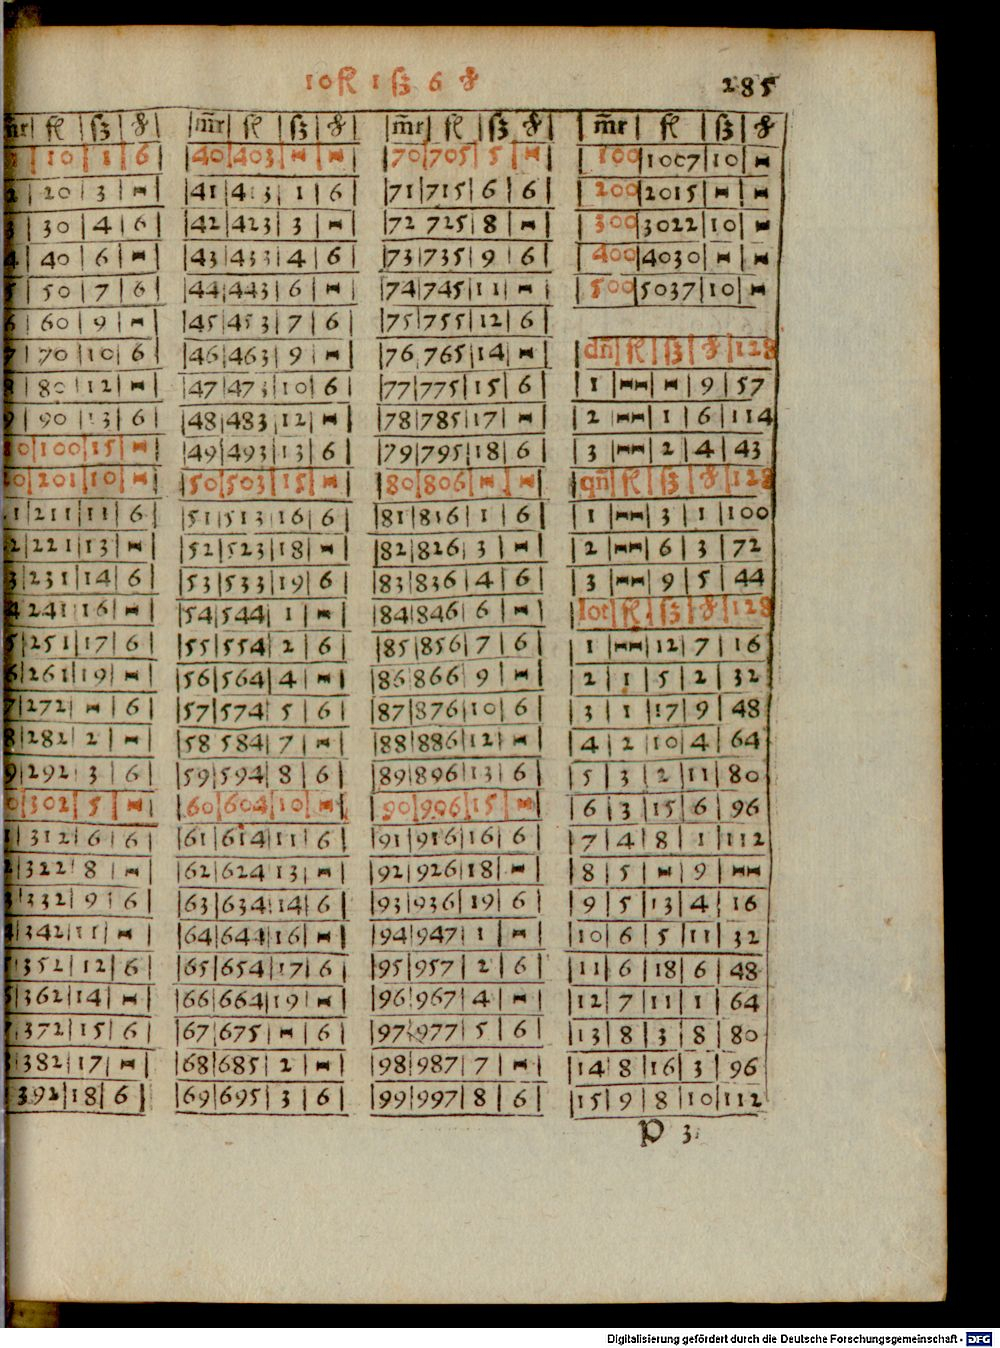 10 fl 1 ß 6 ₰
285
m̄r | fl | ß | ₰
1 | 10 | 1 | 6
2 | 20 | 3 | ⋈
3 | 30 | 4 | 6
4 | 40 | 6 | ⋈
5 | 50 | 7 | 6
6 | 60 | 9 | ⋈
7 | 70 | 10 | 6
8 | 80 | 12 | ⋈
9 | 90 | 13 | 6
10 | 100 | 15 | ⋈
20 | 201 | 10 | ⋈
1 | 211 | 11 | 6
2 | 221 | 13 | ⋈
3 | 231 | 14 | 6
4 | 241 | 16 | ⋈
5 | 251 | 17 | 6
6 | 261 | 19 | ⋈
7 | 272 | ⋈ | 6
8 | 282 | 2 | ⋈
9 | 292 | 3 | 6
0 | 302 | 5 | ⋈
1 | 312 | 6 | 6
2 | 322 | 8 | ⋈
3 | 332 | 9 | 6
4 | 342 | 11 | ⋈
5 | 352 | 12 | 6
6 | 362 | 14 | ⋈
7 | 372 | 15 | 6
8 | 382 | 17 | ⋈
392 | 18 | 6
m̄r | fl | ß | ₰
40 | 403 | ⋈ | ⋈
41 | 413 | 1 | 6
42 | 423 | 3 | ⋈
43 | 433 | 4 | 6
44 | 443 | 6 | ⋈
45 | 453 | 7 | 6
46 | 463 | 9 | ⋈
47 | 473 | 10 | 6
48 | 483 | 12 | ⋈
49 | 493 | 13 | 6
50 | 503 | 15 | ⋈
51 | 513 | 16 | 6
52 | 523 | 18 | ⋈
53 | 533 | 19 | 6
54 | 544 | 1 | ⋈
55 | 554 | 2 | 6
56 | 564 | 4 | ⋈
57 | 574 | 5 | 6
58 | 584 | 7 | ⋈
59 | 594 | 8 | 6
60 | 604 | 10 | ⋈
61 | 614 | 11 | 6
62 | 624 | 13 | ⋈
63 | 634 | 14 | 6
64 | 644 | 16 | ⋈
65 | 654 | 17 | 6
66 | 664 | 19 | ⋈
67 | 675 | ⋈ | 6
68 | 685 | 2 | ⋈
69 | 695 | 3 | 6
m̄r | fl | ß | ₰
70 | 705 | 5 | ⋈
71 | 715 | 6 | 6
72 | 725 | 8 | ⋈
73 | 735 | 9 | 6
74 | 745 | 11 | ⋈
75 | 755 | 12 | 6
76 | 765 | 14 | ⋈
77 | 775 | 15 | 6
78 | 785 | 17 | ⋈
79 | 795 | 18 | 6
80 | 806 | ⋈ | ⋈
81 | 816 | 1 | 6
82 | 826 | 3 | ⋈
83 | 836 | 4 | 6
84 | 846 | 6 | ⋈
85 | 856 | 7 | 6
86 | 866 | 9 | ⋈
87 | 876 | 10 | 6
88 | 886 | 12 | ⋈
89 | 896 | 13 | 6
90 | 906 | 15 | ⋈
91 | 916 | 16 | 6
92 | 926 | 18 | ⋈
93 | 936 | 19 | 6
94 | 947 | 1 | ⋈
95 | 957 | 2 | 6
96 | 967 | 4 | ⋈
97 | 977 | 5 | 6
98 | 987 | 7 | ⋈
99 | 997 | 8 | 6
m̄r | fl | ß | ₰
100 | 1007 | 10 | ⋈
200 | 2015 | ⋈ | ⋈
300 | 3022 | 10 | ⋈
400 | 4030 | ⋈ | ⋈
500 | 5037 | 10 | ⋈
dn̄ | fl | ß | ₰ | 128
1 | ⋈⋈ | ⋈ | 9 | 57
2 | ⋈⋈ | 1 | 6 | 114
3 | ⋈⋈ | 2 | 4 | 43
qn̄ | fl | ß | ₰ | 128
1 | ⋈⋈ | 3 | 1 | 100
2 | ⋈⋈ | 6 | 3 | 72
3 | ⋈⋈ | 9 | 5 | 44
lot | fl | ß | ₰ | 128
1 | ⋈⋈ | 12 | 7 | 16
2 | 1 | 5 | 2 | 32
3 | 1 | 17 | 9 | 48
4 | 2 | 10 | 4 | 64
5 | 3 | 2 | 11 | 80
6 | 3 | 15 | 6 | 96
7 | 4 | 8 | 1 | 112
8 | 5 | ⋈ | 9 | ⋈⋈
9 | 5 | 13 | 4 | 16
10 | 6 | 5 | 11 | 32
11 | 6 | 18 | 6 | 48
12 | 7 | 11 | 1 | 64
13 | 8 | 3 | 8 | 80
14 | 8 | 16 | 3 | 96
15 | 9 | 8 | 10 | 112
P 3
Digitalisierung gefördert durch die Deutsche Forschungsgemeinschaft - DFG